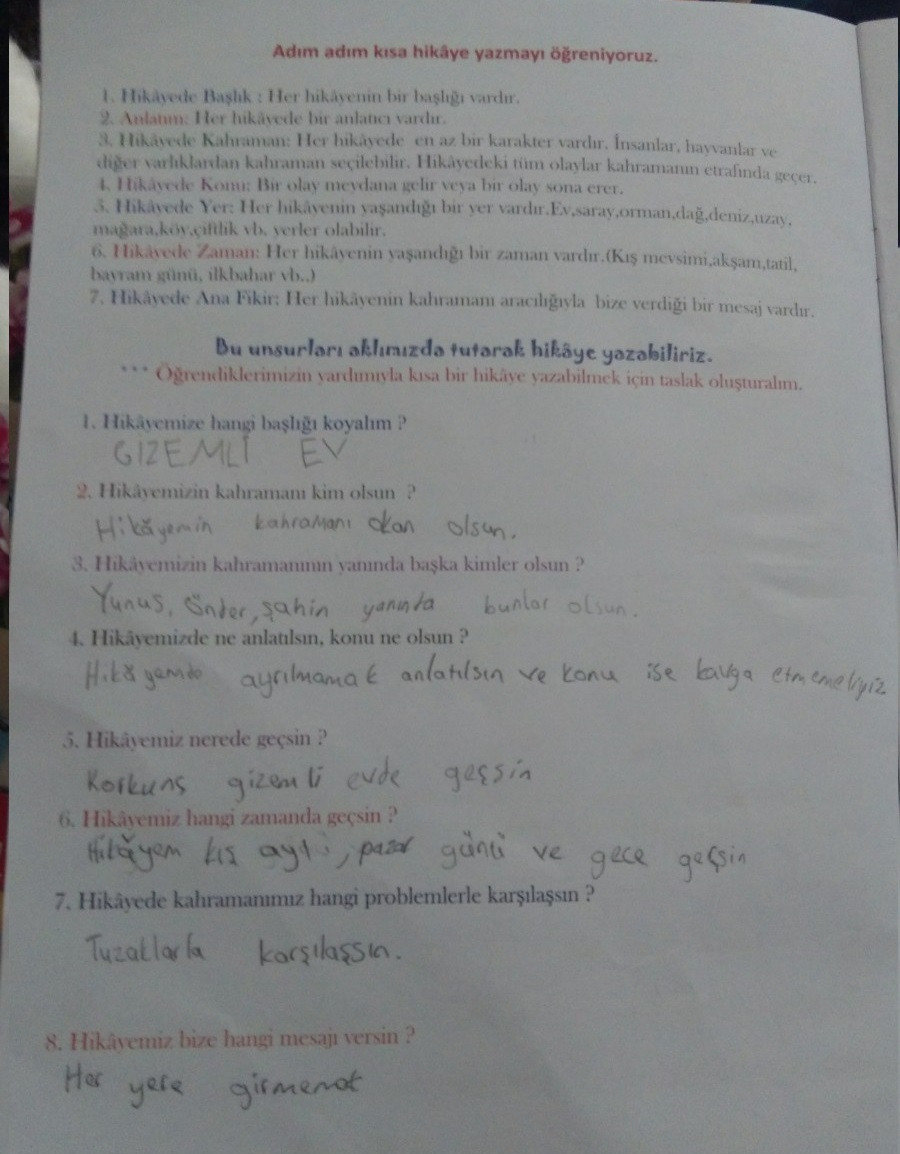 Adım adım kısa hikâye yazmayı öğreniyoruz.
1. Hikâyede Başlık : Her hikâyenin bir başlığı vardır.
2. Anlatım: Her hikâyede bir anlatıcı vardır.
3. Hikâyede Kahraman: Her hikâyede en az bir karakter vardır. İnsanlar, hayvanlar ve
diğer varlıklardan kahraman seçilebilir. Hikâyedeki tüm olaylar kahramanın etrafında geçer.
4. Hikâyede Konu: Bir olay meydana gelir veya bir olay sona erer.
5. Hikâyede Yer: Her hikâyenin yaşandığı bir yer vardır.Ev,saray,orman,dağ,deniz,uzay,
mağara,köy,çiftlik vb. yerler olabilir.
6. Hikâyede Zaman: Her hikâyenin yaşandığı bir zaman vardır.(Kış mevsimi,akşam,tatil,
bayram günü, ilkbahar vb..)
7. Hikâyede Ana Fikir: Her hikâyenin kahramanı aracılığıyla bize verdiği bir mesaj vardır.
Bu unsurları aklımızda tutarak hikâye yazabiliriz.
*** Öğrendiklerimizin yardımıyla kısa bir hikâye yazabilmek için taslak oluşturalım.
1. Hikâyemize hangi başlığı koyalım ?
GİZEMLİ EV
2. Hikâyemizin kahramanı kim olsun ?
Hikâyemin kahramanı Okan olsun.
3. Hikâyemizin kahramanının yanında başka kimler olsun ?
Yunus, Önder, şahin yanında bunlar olsun.
4. Hikâyemizde ne anlatılsın, konu ne olsun ?
Hikâyemde ayrılmamak anlatılsın ve konu ise kavga etmemeliyiz
5. Hikâyemiz nerede geçsin ?
Korkunç gizemli evde geçsin
6. Hikâyemiz hangi zamanda geçsin ?
Hikâyem kış ayı, pazar günü ve gece geçsin
7. Hikâyede kahramanımız hangi problemlerle karşılaşsın ?
Tuzaklarla karşılaşsın.
8. Hikâyemiz bize hangi mesajı versin ?
Her yere girmemek